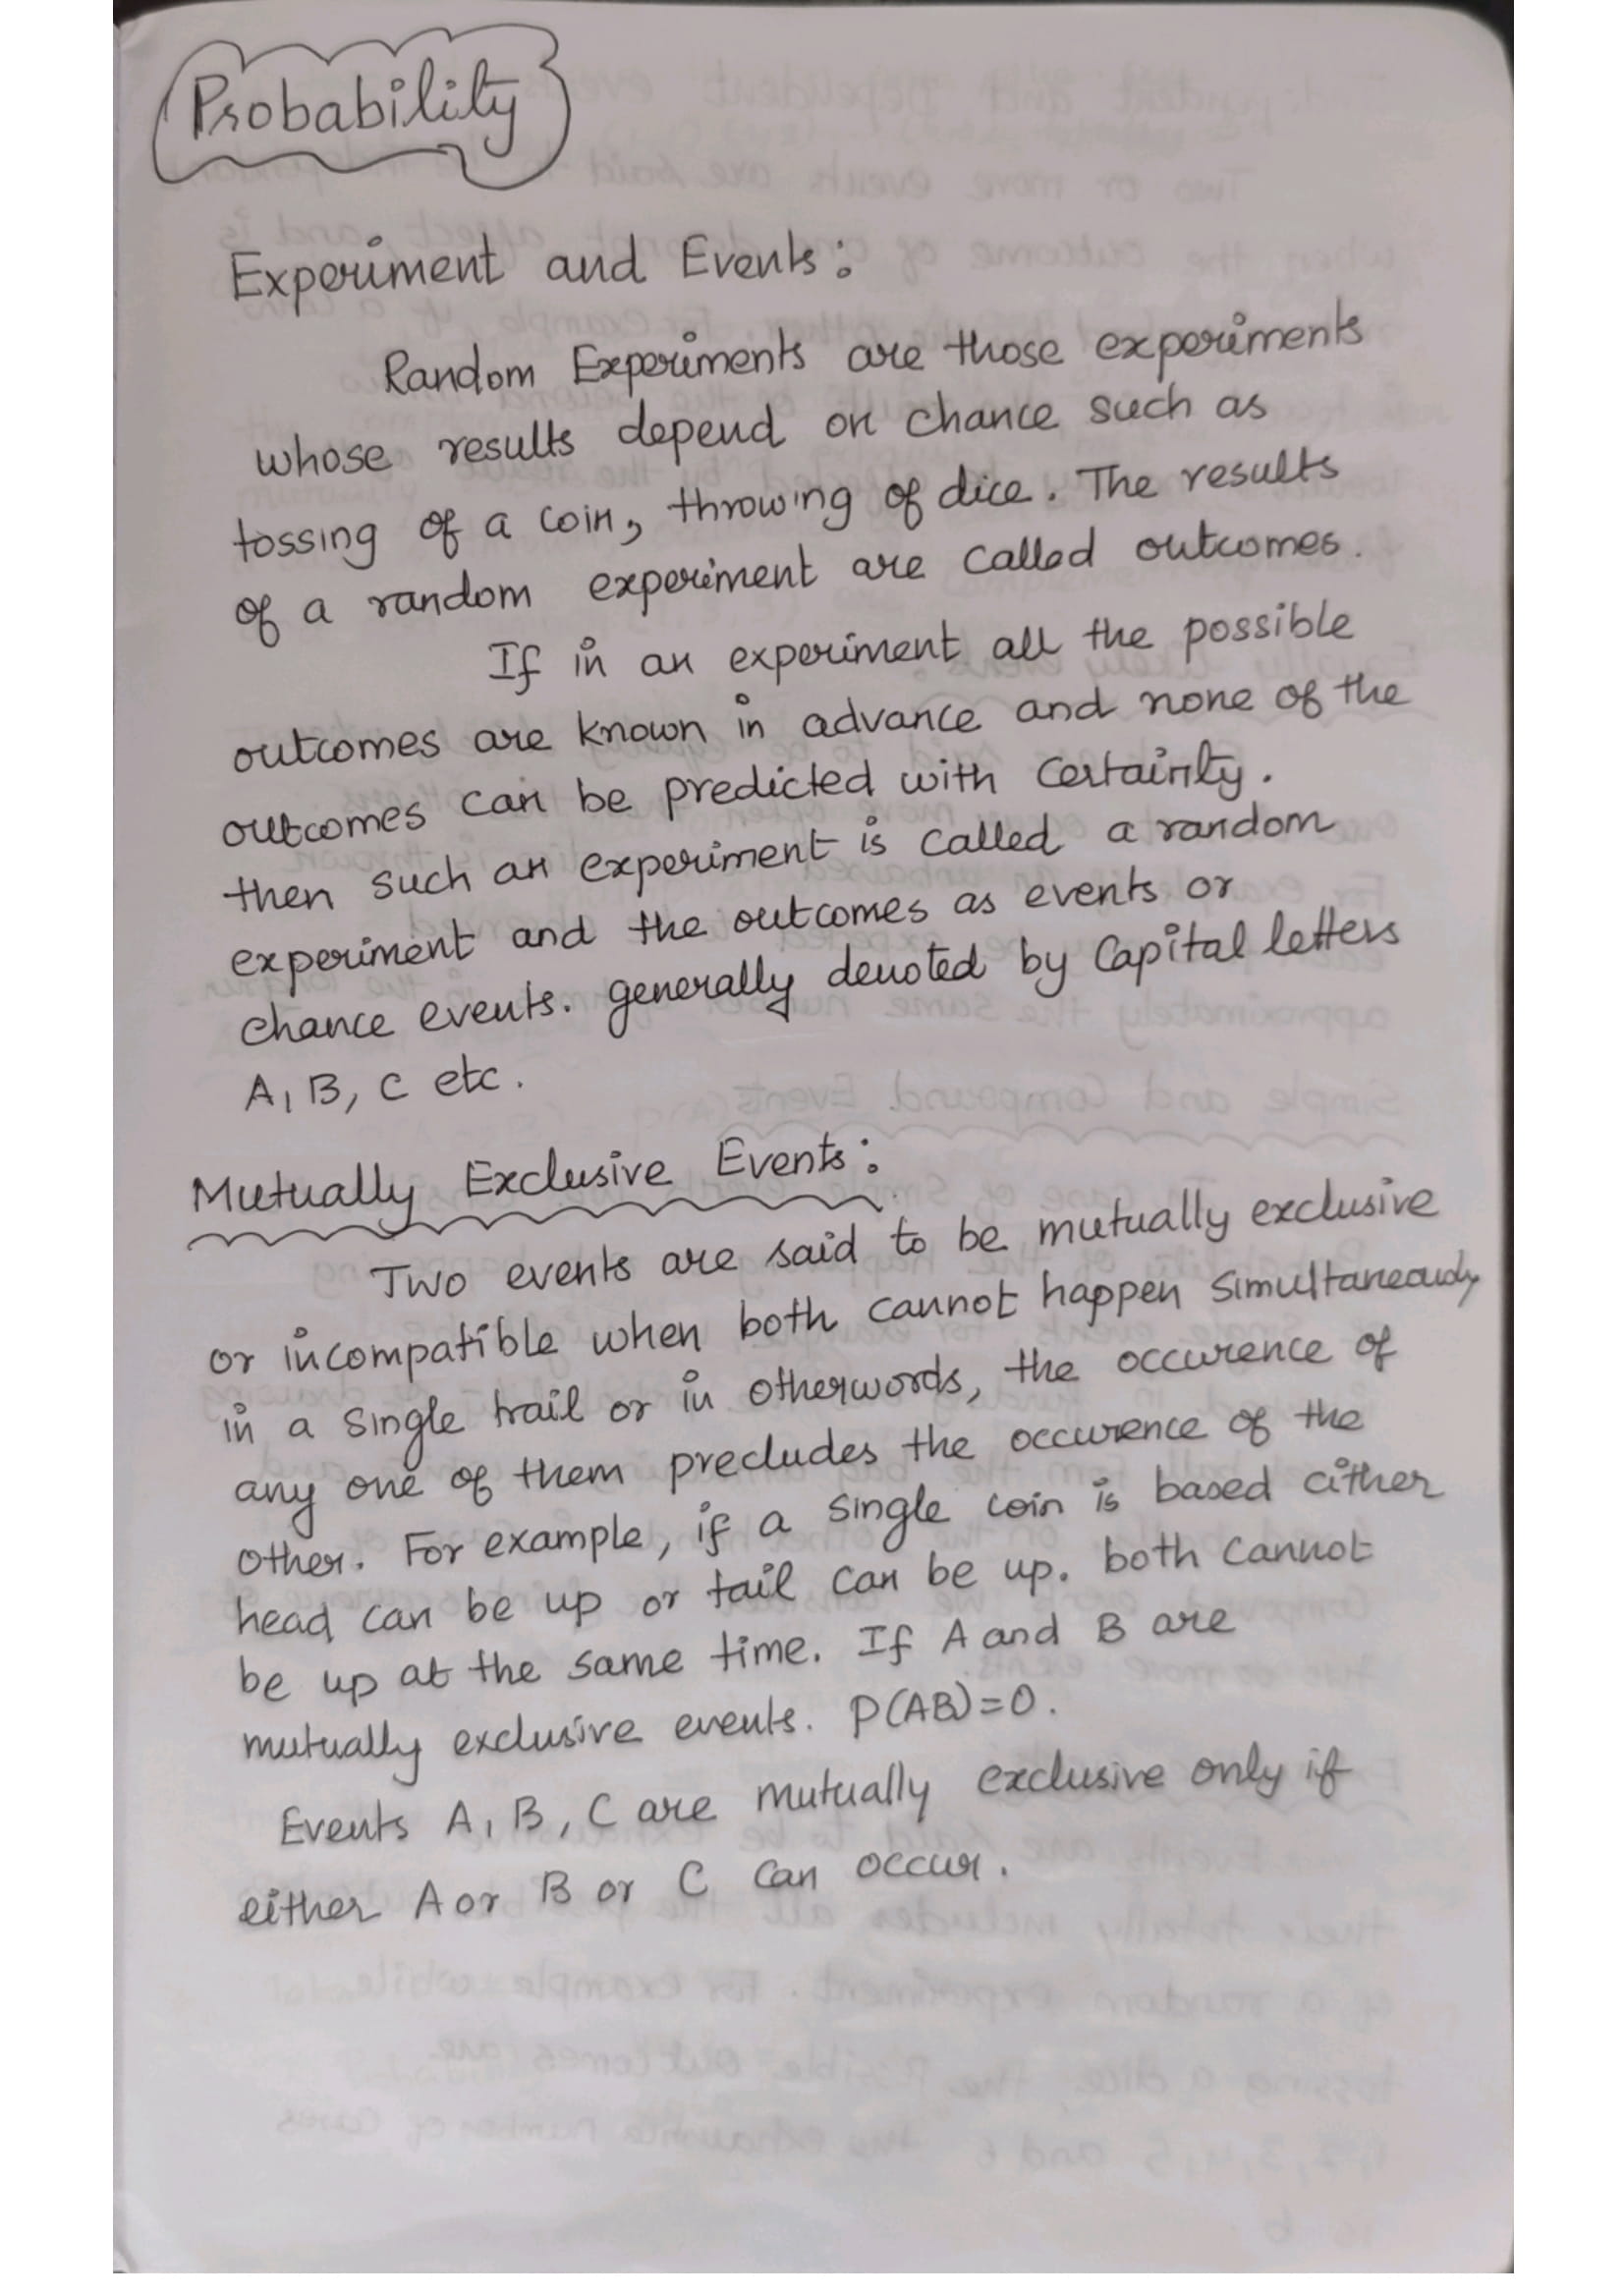 Probability
Experiment and Events:
Random Experiments are those experiments
whose results depend on chance such as
tossing of a coin, throwing of dice. The results
of a random experiment are called outcomes.
If in an experiment all the possible
outcomes are known in advance and none of the
outcomes can be predicted with certainity.
then such an experiment is called a random
experiment and the outcomes as events or
chance events. generally denoted by Capital letters
A, B, C etc.
Mutually Exclusive Events:
Two events are said to be mutually exclusive
or incompatible when both cannot happen simultaneously
in a single trail or in otherwords, the occurence of
any one of them precludes the occurence of the
other. For example, if a single coin is based either
head can be up or tail can be up. both cannot
be up at the same time. If A and B are
mutually exclusive events. P(AB)=0.
Events A, B, C are mutually exclusive only if
either A or B or C can occur.